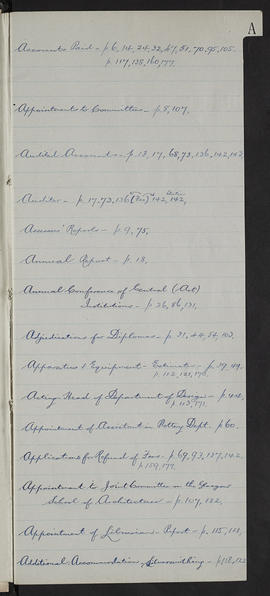 A
Accounts Paid - p 6, 14, 24, 32, 47, 51, 70, 95, 105.
p. 117, 138, 160, 177.
Appointments to Committees - p. 8, 107.
Audited Accounts - p. 13, 17, 68, 73, 136, 142, 143
Auditor - p. 17, 73, 136 (Fee) 142, 142,
Assessors' Reports - p. 9, 75.
Annual Report - p. 18.
Annual Conference of Central (Art)
Institutions - p. 26, 86, 131.
Adjudications for Diplomas - p. 31, 44, 54, 103.
Apparatus & Equipment - Estimates - p. 39, 49.
p. 112, 121, 170.
Acting Head of Department of Design - p. 404.
p. 113, 171.
Appointment of Assistant in Pottery Dept - p. 60.
Applications for Refund of Fees - p. 69, 93, 137, 142.
p. 159, 177.
Appointment to Joint Committee on the Glasgow
School of Architecture - p. 107, 122.
Appointment of Librarian - Report - p. 115, 118,
Additional Accommodation, - p. 118, 122